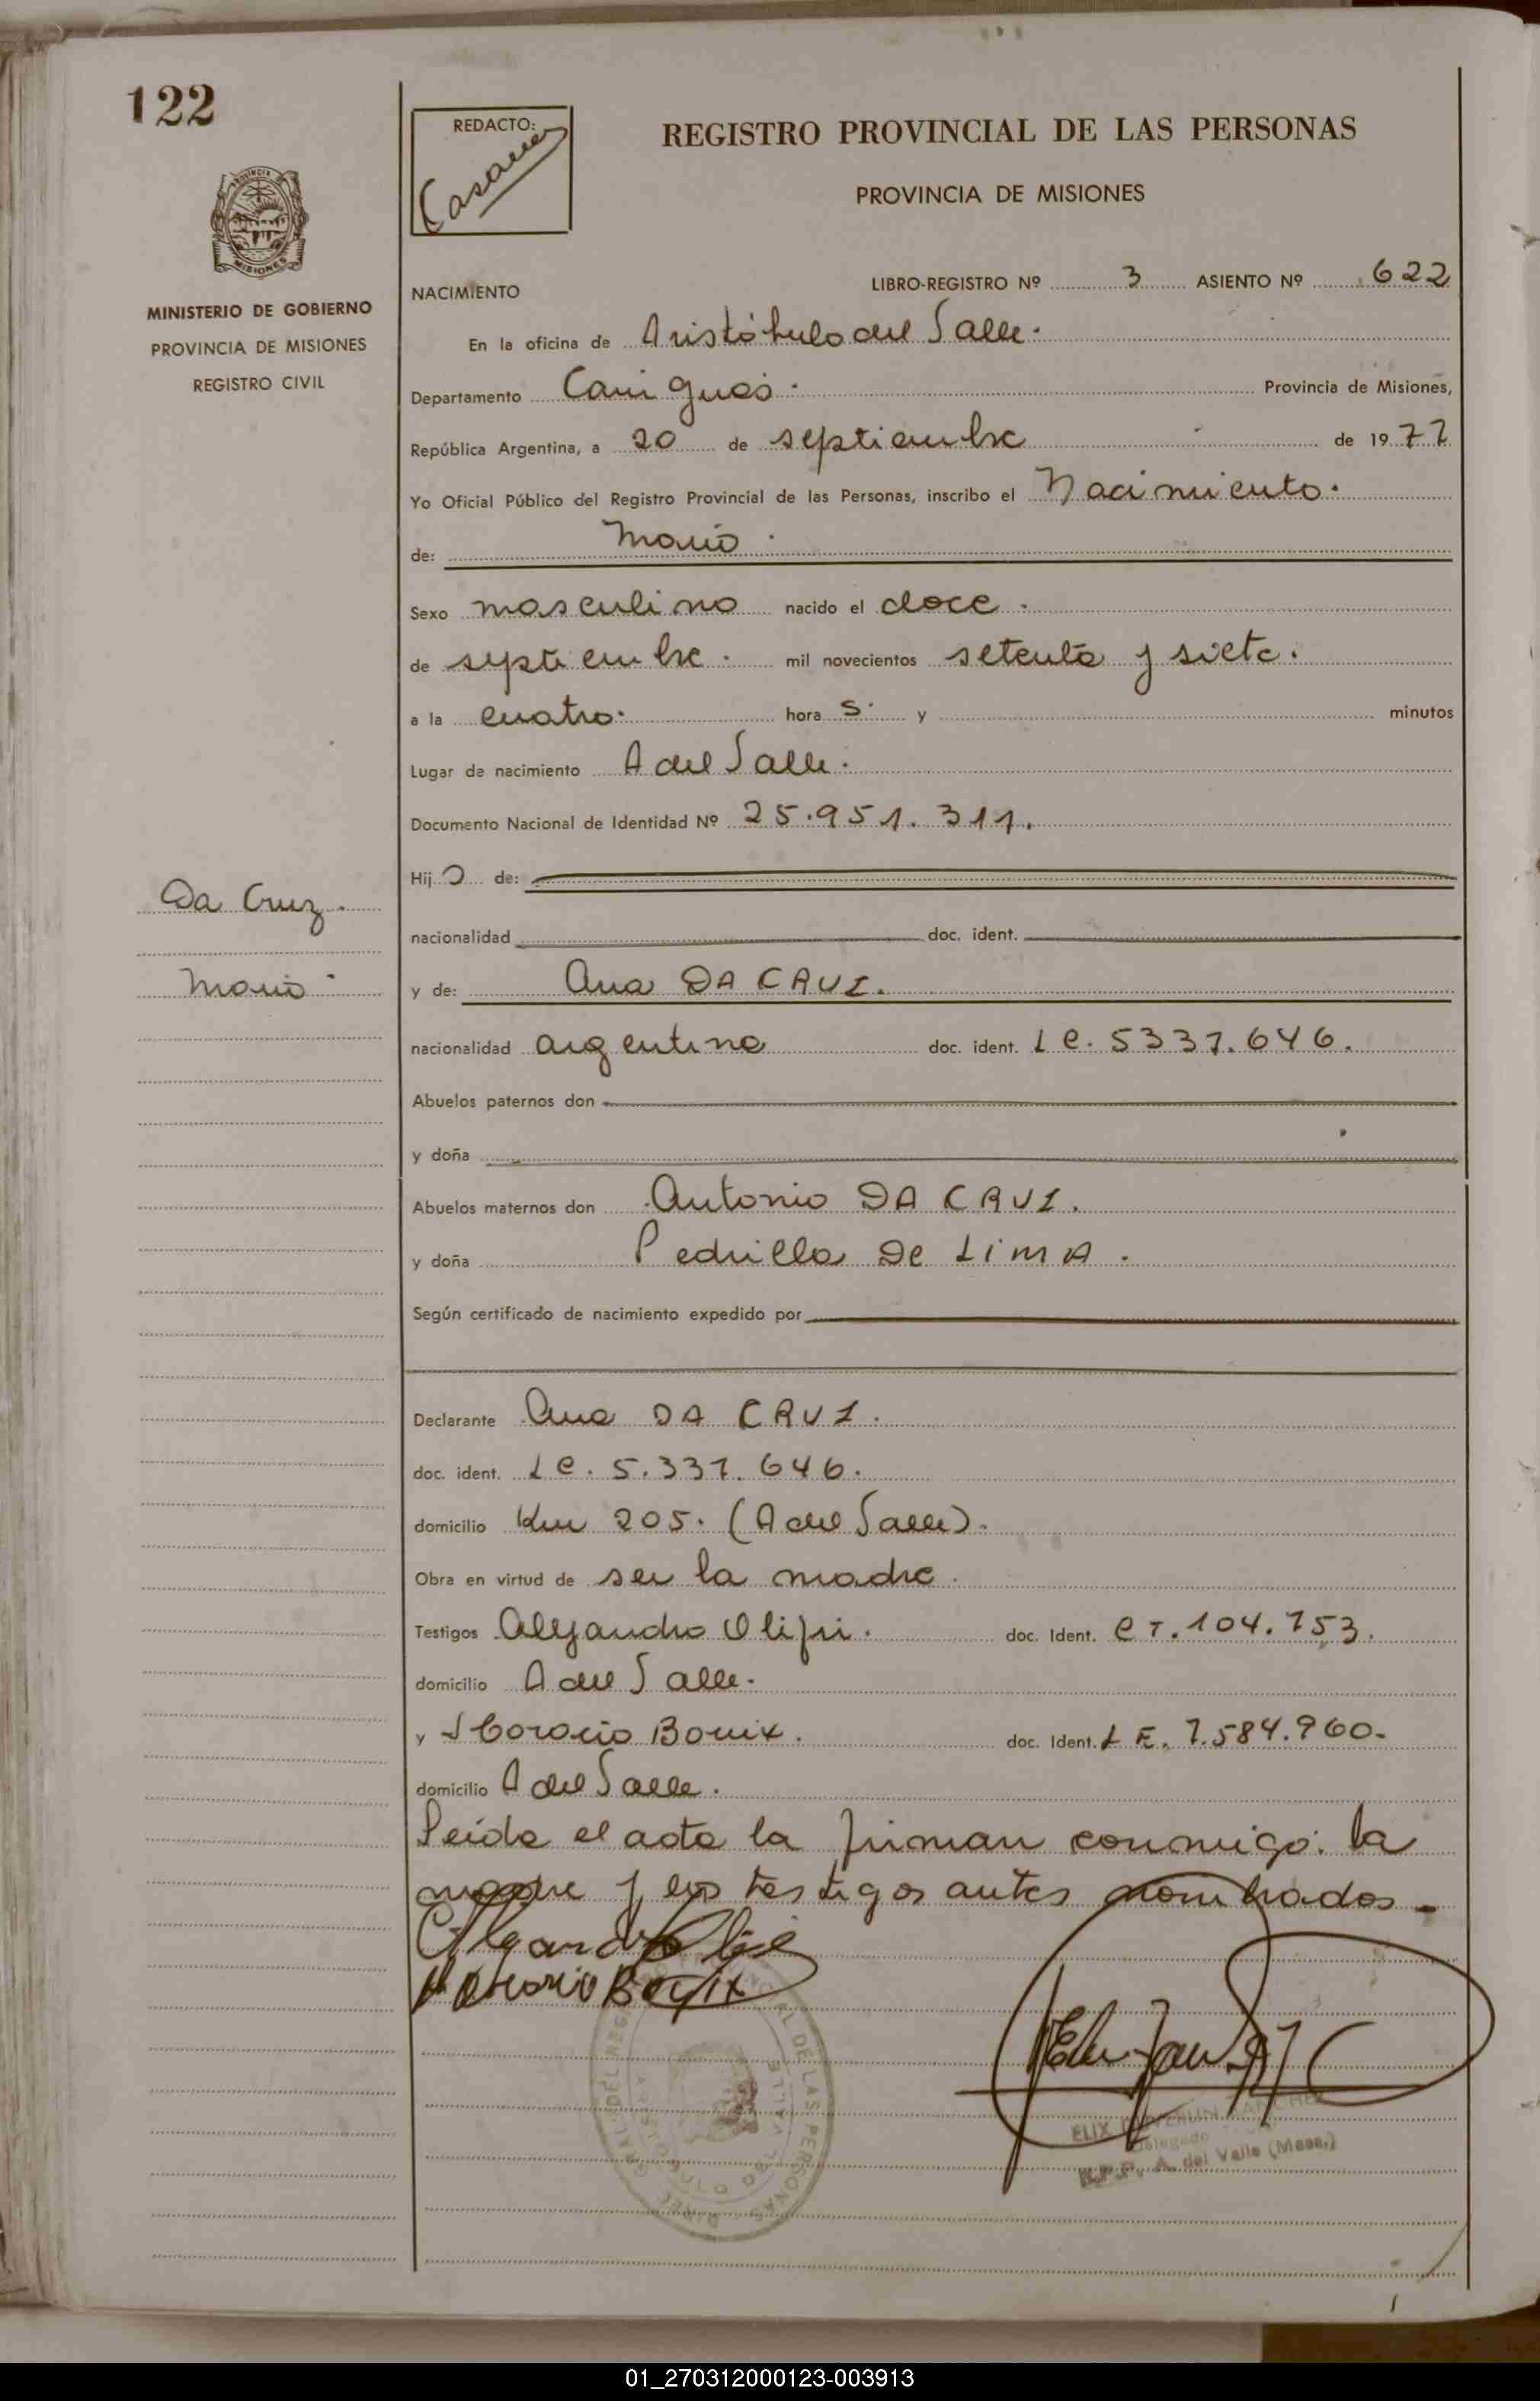 122
REDACTO:
REGISTRO PROVINCIAL DE LAS PERSONAS
PROVINCIA DE MISIONES
MISIONES
MINISTERIO DE GOBIERNO
PROVINCIA DE MISIONES
REGISTRO CIVIL
NACIMIENTO
LIBRO-REGISTRO Nº 3 ASIENTO Nº 622
En la oficina de Aristóbulo del Valle.
Departamento Cainguás. Provincia de Misiones,
República Argentina, a 20 de septiembre de 1977
Yo Oficial Público del Registro Provincial de las Personas, inscribo el Nacimiento.
de: Mario.
Sexo masculino nacido el doce.
de septiembre. mil novecientos setenta y siete.
a la cuatro. hora s. y minutos
Lugar de nacimiento A del Valle.
Documento Nacional de Identidad Nº 25.951.311.
Hij o de:
nacionalidad doc. ident.
Da Cruz.
Mario
y de: Ana DA CRUZ.
nacionalidad argentina doc. ident. L C. 5337.646.
Abuelos paternos don
y doña
Abuelos maternos don Antonio DA CRUZ.
y doña Pedrilla De LIMA.
Según certificado de nacimiento expedido por
Declarante Ana DA CRUZ.
doc. ident. L C. 5.337.646.
domicilio Km 205. (A del Valle).
Obra en virtud de ser la madre.
Testigos Alejandro doc. Ident. C I. 104.753.
domicilio A del Valle.
y Horacio doc. Ident. L E. 7.584.960.
domicilio A del Valle.
Leída el acta la firman conmigo: la
madre y los testigos antes nombrados.
Delegado
R.P.P. A. del Valle (Mnes.)
01_270312000123-003913